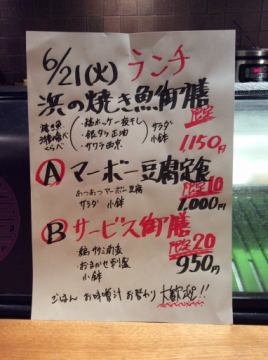 6/21(火) ランチ
浜の焼き魚御膳
限定
焼き魚
食べ
くらべ
・縞ホッケ一夜干し
・銀ダラ正油
・サワラ西京
サラダ
小鉢
1,150円
Ⓐ マーボー豆腐定食
限定10
あつあつマーボー豆腐
サラダ 小鉢
1,000円
Ⓑ サービス御膳
限定20
・おまかせ刺盛
小鉢
950円
ごはん お味噌汁 お替わり 大歓迎!!